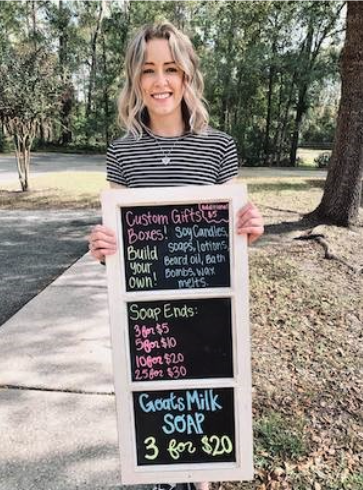 Custom Gifts
Additional $5
Boxes! Soy Candles,
Build soaps, lotions,
your Beard oil, Bath
own! Bombs, wax
melts.
Soap Ends:
3 for $5
5 for $10
10 for $20
25 for $30
Goats Milk
SOAP
3 for $20